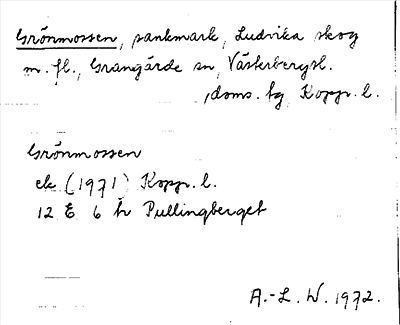 Grönmossen, sankmark, Ludvika skog
m. fl., Grangärde sn, Västerbergsl.
doms. tg, Kopp. l.
Grönmossen
ek. (1971) Kopp. l.
12 E 6 h Pullingberget
A.-L. W. 1972.